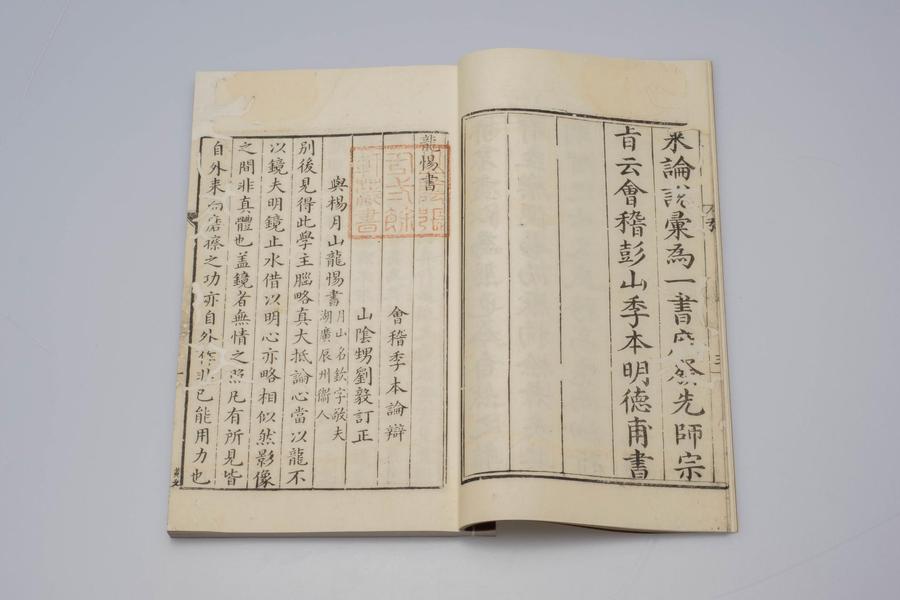 來論說彙為一書庶發先師宗
旨云會稽彭山季本明德甫書
龍惕書
會稽季本論辯
山陰甥劉毅訂正
與楊月山龍惕書月山名欽字敬夫
湖廣辰州衞人
別後見得此學主腦略真大抵論心當以龍不
以鏡夫明鏡止水借以明心亦略相似然影像
之間非真體也盖鏡者無情之照凡有所見皆
自外來而磨擦之功亦自外作非己能用力也